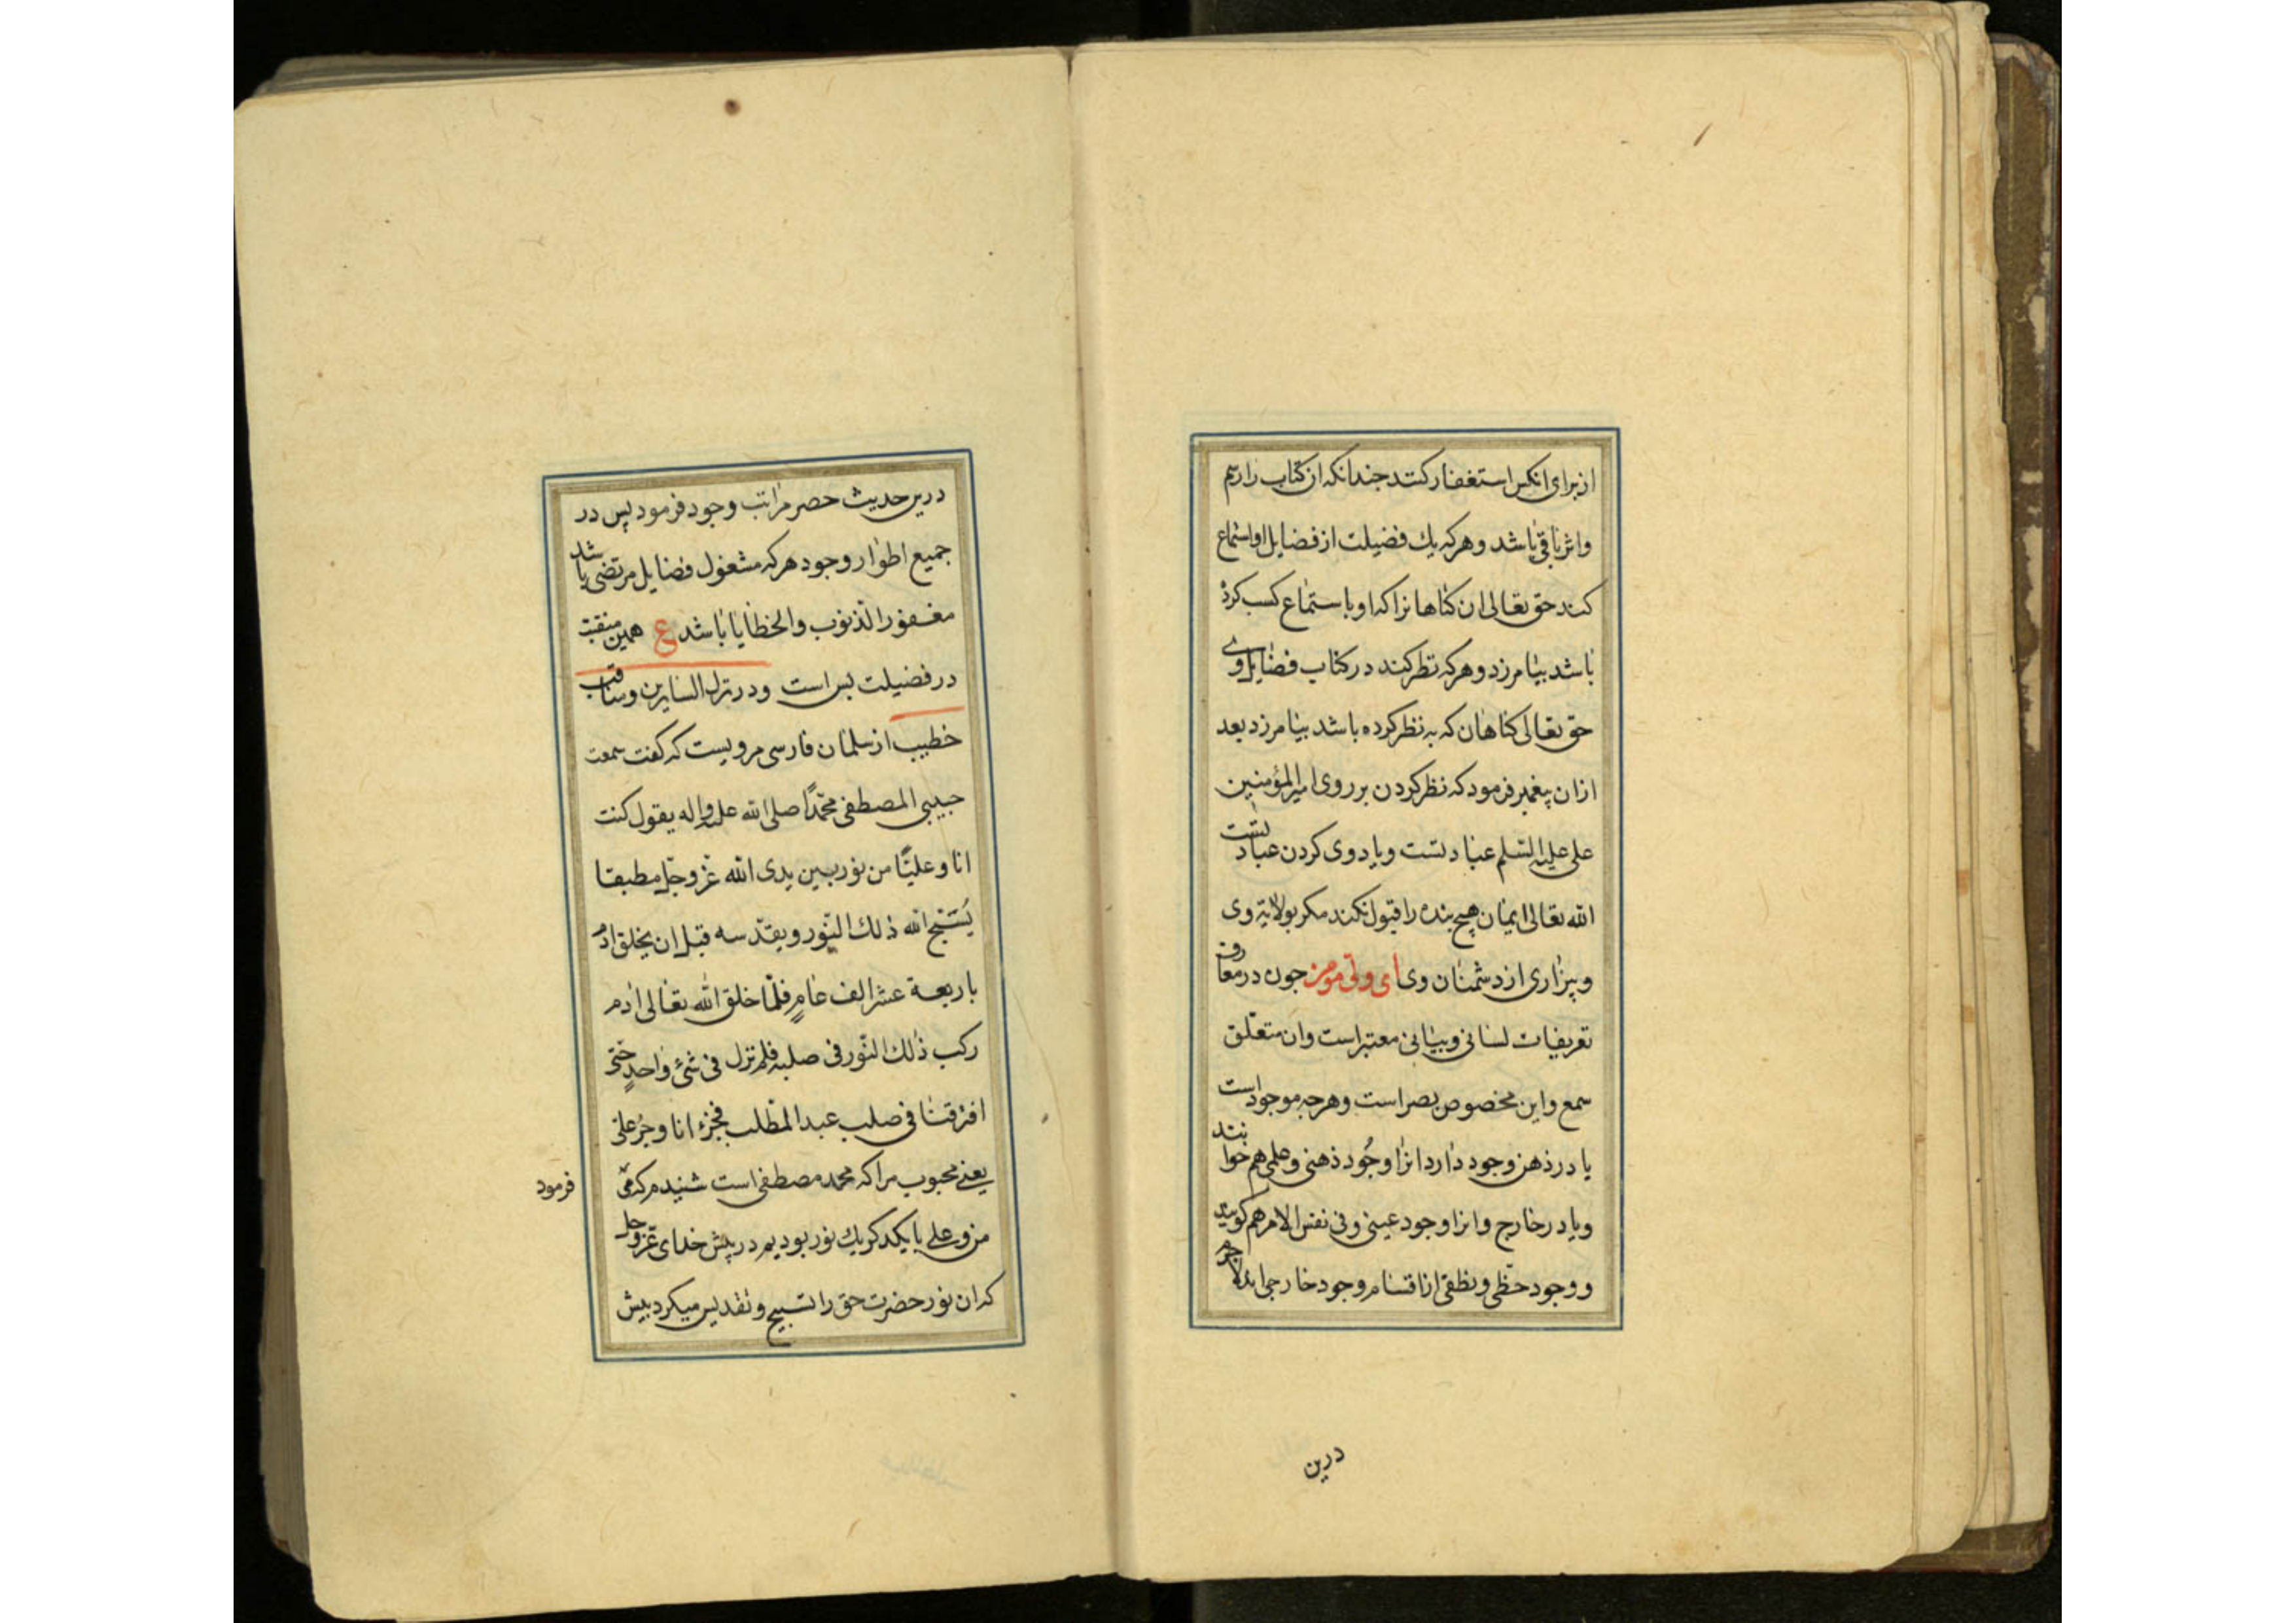 از برای انکس استغفار کنند جندانکه ان کتاب را رسم
واثر باقی باشد وهرکه یك فضیلت از فضایل او استماع
کند حق تعالی ان کناهانرا که او باستماع کسب کرده
باشد بیامرزد وهرکه نظر کند در کتاب فضایل وی
حق تعالی کناهان که به نظر کرده باشد بیامرزد بعد
ازان پیغمبر فرمود که نظر کردن بر روی امیرالمؤمنین
علی علیه السّلم عبادتست ویاد وی کردن عبادتست
الله تعالی ایمان هیچ بنده را قبول نکند مکر بولایة وی
وبیزاری از دشمنان وی ای ولیّ مومن جون در معارف
تعریفات لسانی وبیانی معتبر است وان متعلّق
سمع واین مخصوص بصر است وهرجه موجود است
یا در ذهن وجود دارد انرا وجُود ذهنی وعلمی هم خوانند
ویا در خارج وانرا وجود عینی وفی نفس الامر هم کویند
ووجود خطّی ونطقی از اقسام وجود خارجی اند لاجرم
درین
درین حدیث حصر مراتب وجود فرمود پس در
جمیع اطوار وجود هرکه مشغول فضایل مرتضی باشد
مغفور الذنوب والخطایا باشد ع همین منقبت
در فضیلت بس است ودر نزل السایرین ومناقب
خطیب از سلمان فارسی مرویست که کفت سمعت
حبیبی المصطفی محمّدًا صلی الله علیه واله یقول کنت
انا وعلیًّا من نور بین یدی الله عزّ وجلّ مطبقا
یُسَبّح الله ذلك النّور ویقدّسه قبل ان یخلق ادم
باربعة عشر الف عامٍ فلمّا خلق الله تعالی ادم
رکب ذلك النّور فی صلبه فلم نزل فی شئ واحدٍ حتّی
افترقنا فی صلب عبد المطّلب فجزء انا وجزء علیّ
یعنی محبوب مرا که محمد مصطفی است شنیدم که می
فرمود
من وعلی با یکدکر یك نور بودیم در پیش خدای عزّ وجل
که ان نور حضرت حق را تسبیح وتقدیس میکرد بیش